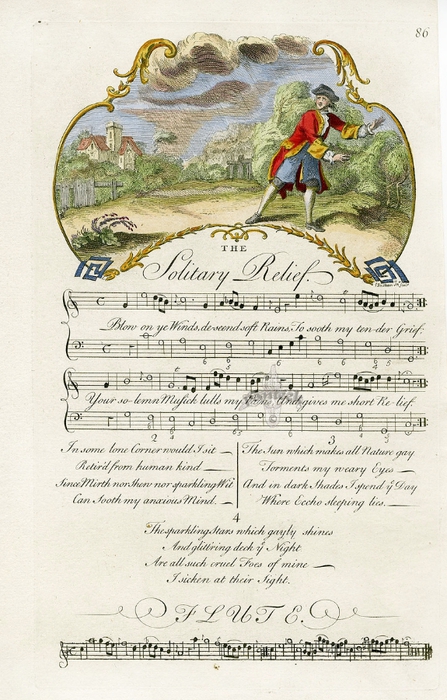 86
THE
Solitary Relief
Blow on ye Winds, descend soft Rains, To sooth my ten-der Grief;
6 6
Your so-lemn Musick lulls my Pains, And gives me short Re-lief
2 3
In some lone Corner would I sit
Retir'd from human kind
Since Mirth nor Shew nor sparkling Wit
Can Sooth my anxious Mind.
The Sun which makes all Nature gay
Torments my weary Eyes
And in dark Shades I spend yͤ Day
Where Eccho sleeping lies.
4
The sparkling Stars which gayly shines
And glitt'ring deck yͤ Night
Are all such cruel Foes of mine
I sicken at their Sight.
FLUTE.